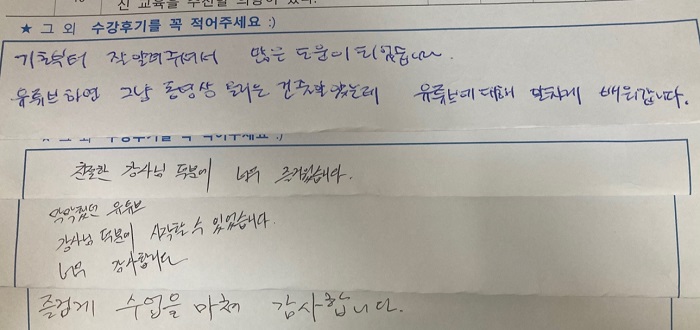 신 교육을 추천할 의향이 있다.
★ 그 외 수강후기를 꼭 적어주세요 :)
기초부터 잘 알려주셔서 많은 도움이 되었습니다.
유튜브하면 그냥 동영상 올리는 건줄만 알았는데 유튜브에 대해 알차게 배워갑니다.
★ 그 외 수강후기를 꼭 적어주세요 :)
친절한 강사님 덕분에 너무 즐거웠습니다.
막막했던 유튜브
강사님 덕분에 시작할 수 있었습니다.
너무 감사합니다
즐겁게 수업을 마쳐 감사합니다.